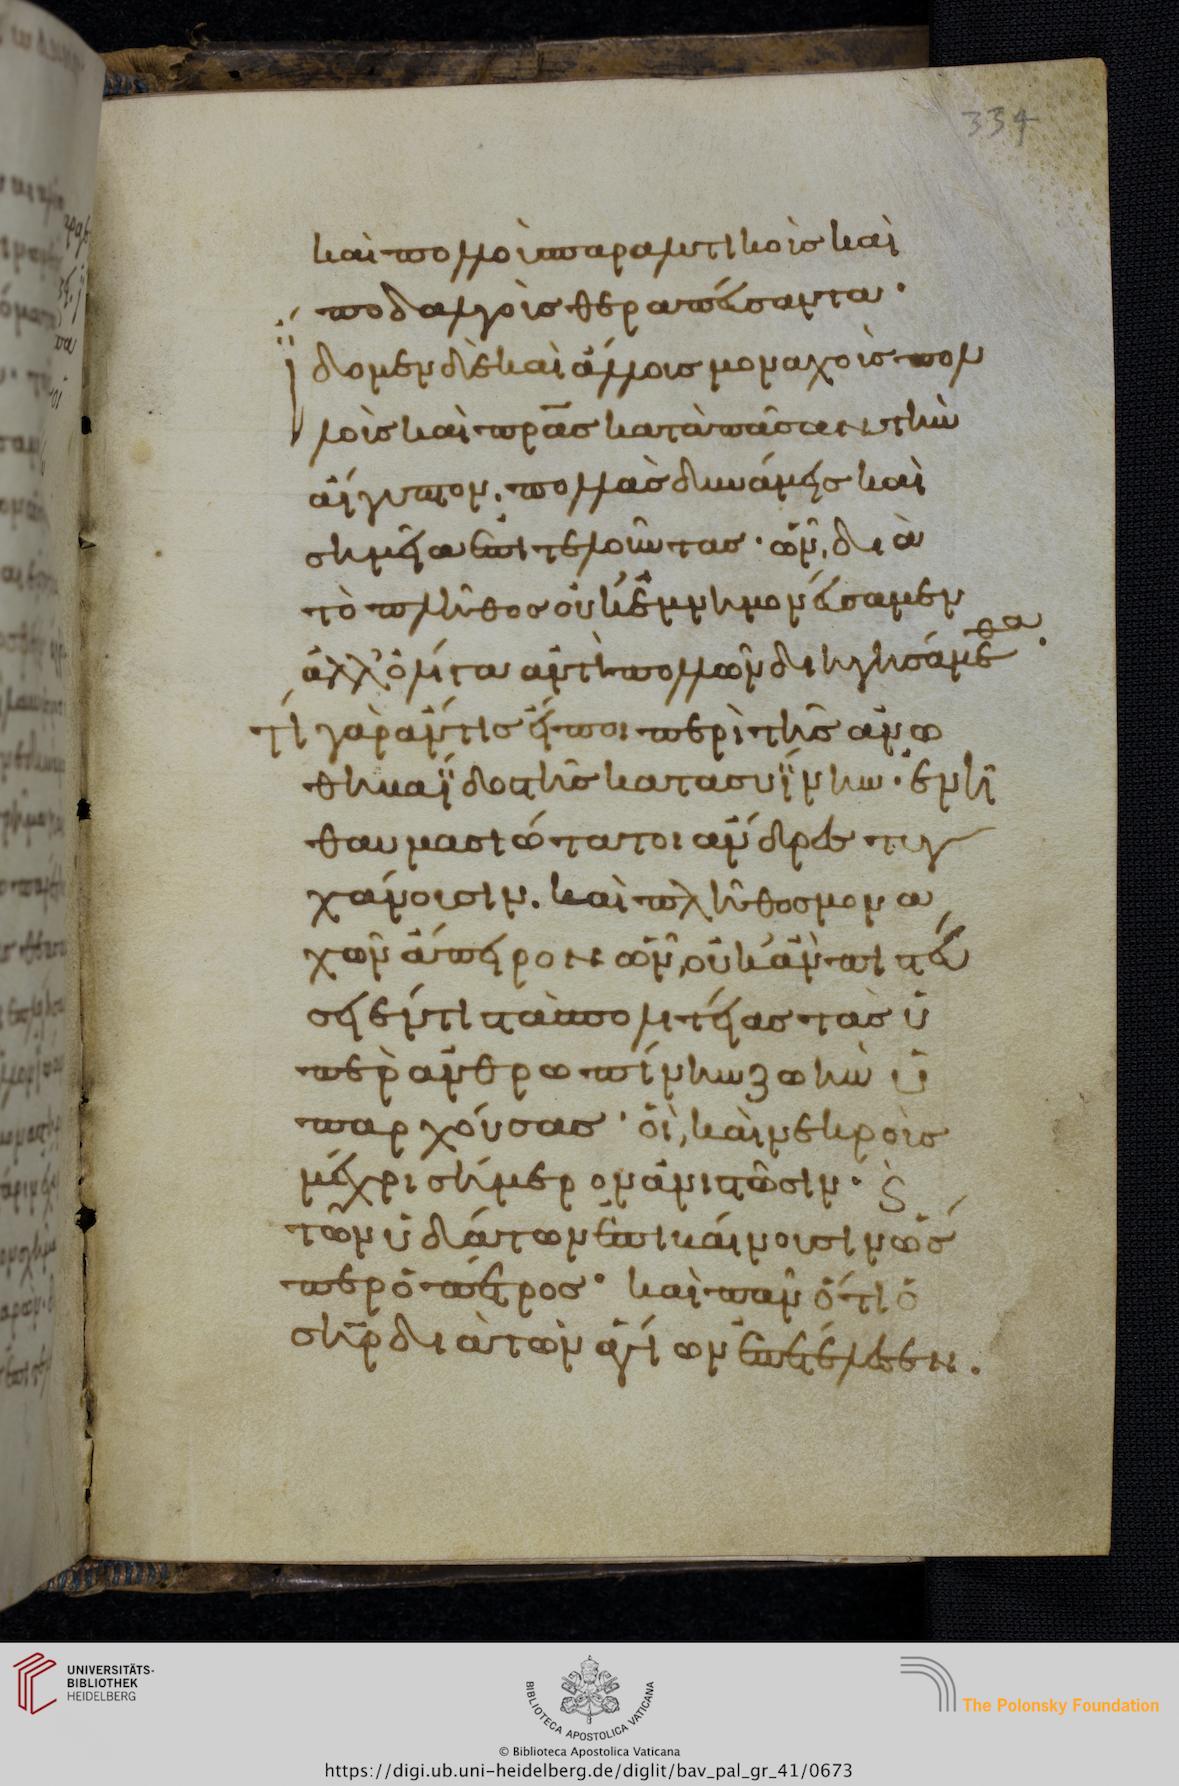 334
καὶ πολλοὺς παραλυτικοὺς καὶ
ποδαλγοὺς θεραπεύσαντα·
ἴδομεν δὲ καὶ ἄλλους μοναχοὺς πολ
λοὺς καὶ πρ̅ας κατὰ πᾶσαν τὴν
αἴγυπτον, πολλὰς δυνάμεις καὶ
σημεῖα ἐπιτελοῦντας· ὧν, διὰ
τὸ πλῆθος οὐκ ἐμνημονεύσαμεν
ἀλλ' ὀλίγα ἀντὶ πολλῶν διηγησάμεθα.
τί γὰρ ἄν τις εἴποι περὶ τῆς ἄνω
θηβαΐδος τῆς κατὰ συΐνην· ἐν ᾗ
θαυμασιώτατοι ἄνδρες τυγ
χάνουσιν. καὶ πλῆθος μονα
χῶν ἄπειρον· ὧν, οὐκ ἄν πιστεύ
σειέν τι τὰς πολιτείας τὰς ὑ
πὲρ ἀνθρωπίνην ζωὴν ὑ
παρχούσας· οἳ, καὶ νεκροὺς
μέχρι σήμερον ἀνιστῶσιν· ϛ
τῶν ὑδάτων ἐπιβαίνουσιν ὥσ
περ ὁ πέτρος· καὶ πᾶν ὅ τι ὁ
σηρ διὰ τῶν ἁγίων ἐπετέλεσεν.
UNIVERSITÄTS-
BIBLIOTHEK
HEIDELBERG
BIBLIOTECA APOSTOLICA VATICANA
The Polonsky Foundation
© Biblioteca Apostolica Vaticana
https://digi.ub.uni-heidelberg.de/diglit/bav_pal_gr_41/0673